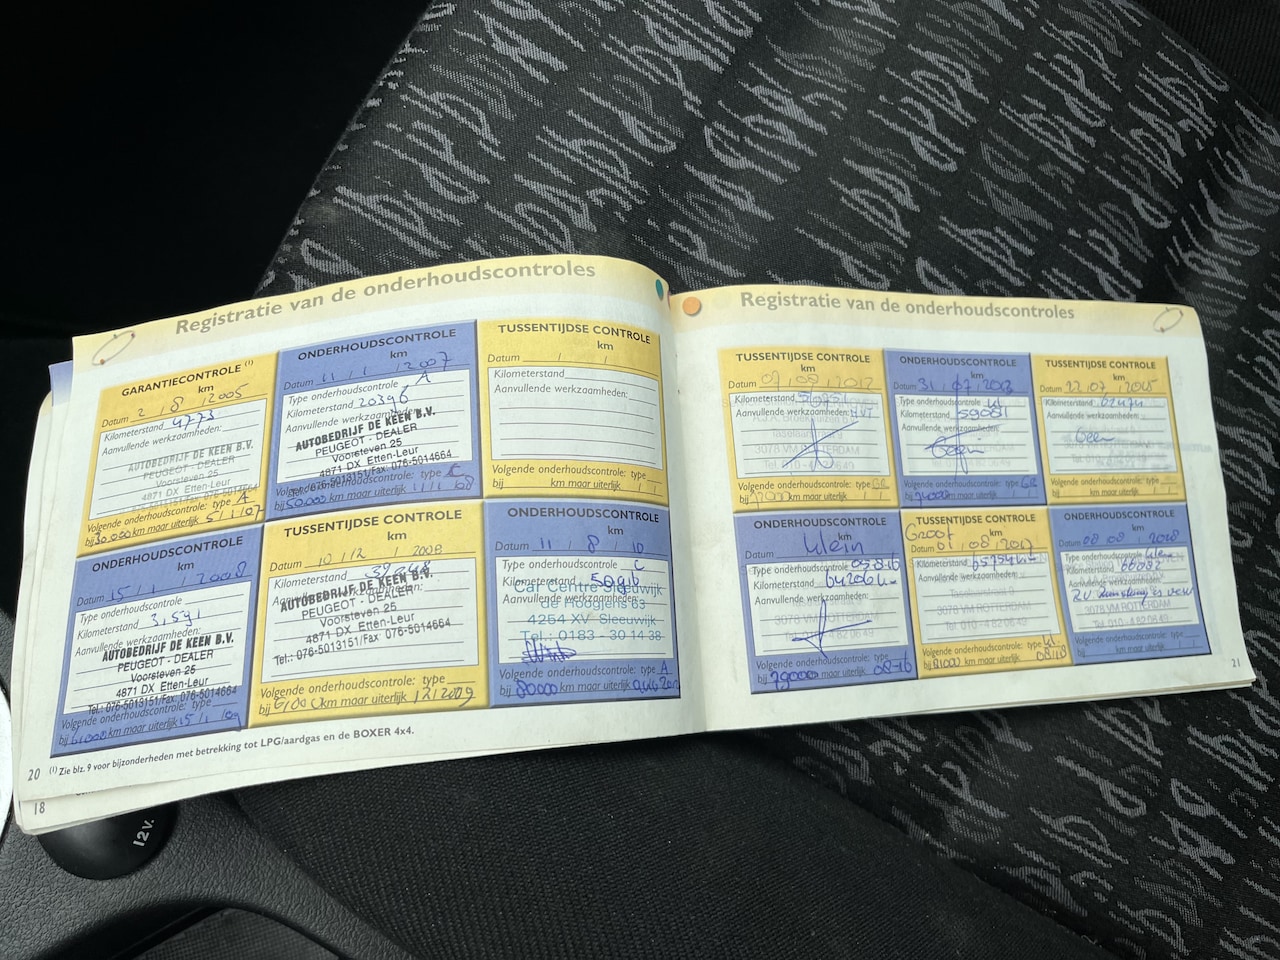 Registratie van de onderhoudscontroles
GARANTIECONTROLE (1)
km
Datum 2 / 8 / 2005
Kilometerstand 4773
Aanvullende werkzaamheden:
AUTOBEDRIJF DE KEEN B.V.
PEUGEOT - DEALER
Voorsteven 25
4871 DX Etten-Leur
Tel.: 076-5013151/Fax: 076-5014664
Volgende onderhoudscontrole: type A
bij 30.000 km maar uiterlijk 5/1/07
ONDERHOUDSCONTROLE
km
Datum 11 / 1 / 2007
Type onderhoudscontrole A
Kilometerstand 20396
Aanvullende werkzaamheden:
AUTOBEDRIJF DE KEEN B.V.
PEUGEOT - DEALER
Voorsteven 25
4871 DX Etten-Leur
Tel.: 076-5013151/Fax: 076-5014664
Volgende onderhoudscontrole: type C
bij 50000 km maar uiterlijk 11/1/08
TUSSENTIJDSE CONTROLE
km
Datum / /
Kilometerstand
Aanvullende werkzaamheden:
Volgende onderhoudscontrole: type
bij km maar uiterlijk / /
ONDERHOUDSCONTROLE
km
Datum 15 / 1 / 2008
Type onderhoudscontrole
Kilometerstand
Aanvullende werkzaamheden:
AUTOBEDRIJF DE KEEN B.V.
PEUGEOT - DEALER
Voorsteven 25
4871 DX Etten-Leur
Tel.: 076-5013151/Fax: 076-5014664
Volgende onderhoudscontrole: type
bij 61000 km maar uiterlijk 15/1/09
TUSSENTIJDSE CONTROLE
km
Datum 10 / 12 / 2008
Kilometerstand
Aanvullende werkzaamheden:
AUTOBEDRIJF DE KEEN B.V.
PEUGEOT - DEALER
Voorsteven 25
4871 DX Etten-Leur
Tel.: 076-5013151/Fax: 076-5014664
Volgende onderhoudscontrole: type
bij km maar uiterlijk 12/2009
ONDERHOUDSCONTROLE
km
Datum 11 / 8 / 10
Type onderhoudscontrole C
Kilometerstand
Car Centre Sleeuwijk
Aanvullende werkzaamheden:
de Hoogjens 63
4254 XV Sleeuwijk
Tel.: 0183 - 30 14 38
Volgende onderhoudscontrole: type A
bij 80000 km maar uiterlijk
(1) Zie blz. 9 voor bijzonderheden met betrekking tot LPG/aardgas en de BOXER 4x4.
20
18
Registratie van de onderhoudscontroles
TUSSENTIJDSE CONTROLE
km
Datum
Kilometerstand
Aanvullende werkzaamheden:
3078 VM ROTTERDAM
Volgende onderhoudscontrole: type
bij km maar uiterlijk
ONDERHOUDSCONTROLE
km
Datum 31 / 07 / 2013
Type onderhoudscontrole kl
Kilometerstand 59081
Aanvullende werkzaamheden:
Volgende onderhoudscontrole: type GR
bij 74000 km maar uiterlijk
TUSSENTIJDSE CONTROLE
km
Datum 22 / 07 / 2015
Kilometerstand 62474
Aanvullende werkzaamheden:
Geen
Volgende onderhoudscontrole: type
bij km maar uiterlijk / /
ONDERHOUDSCONTROLE
km
Datum klein
Type onderhoudscontrole 05-8-16
Kilometerstand
Aanvullende werkzaamheden:
3078 VM ROTTERDAM
Volgende onderhoudscontrole: type
bij 79000 km maar uiterlijk 08-16
TUSSENTIJDSE CONTROLE
Groot
km
Datum 01 / 08 / 2017
Kilometerstand
Aanvullende werkzaamheden:
3078 VM ROTTERDAM
Tel. 010 - 4 82 06 49
Volgende onderhoudscontrole: type kl.
bij 81000 km maar uiterlijk 08/18
ONDERHOUDSCONTROLE
km
Datum 08 08 / 2018
Type onderhoudscontrole klein
Kilometerstand 66092
Aanvullende werkzaamheden:
3078 VM ROTTERDAM
Tel. 010 - 4 82 06 49
Volgende onderhoudscontrole: type
bij km maar uiterlijk / /
21
12V.